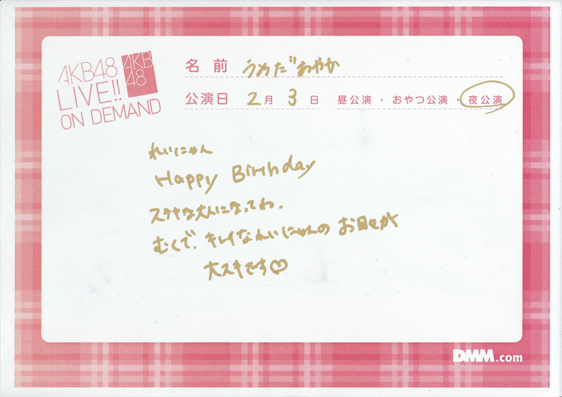 AKB48
LIVE!!
ON DEMAND
AKB
48
名前 うめだ あやか
公演日 2月 3日 昼公演・おやつ公演・夜公演
れいにゃん
Happy Birthday
ステキな大人になってね。
むくで、キレイなれいにゃんの お目々が
大スキです♡
DMM.com